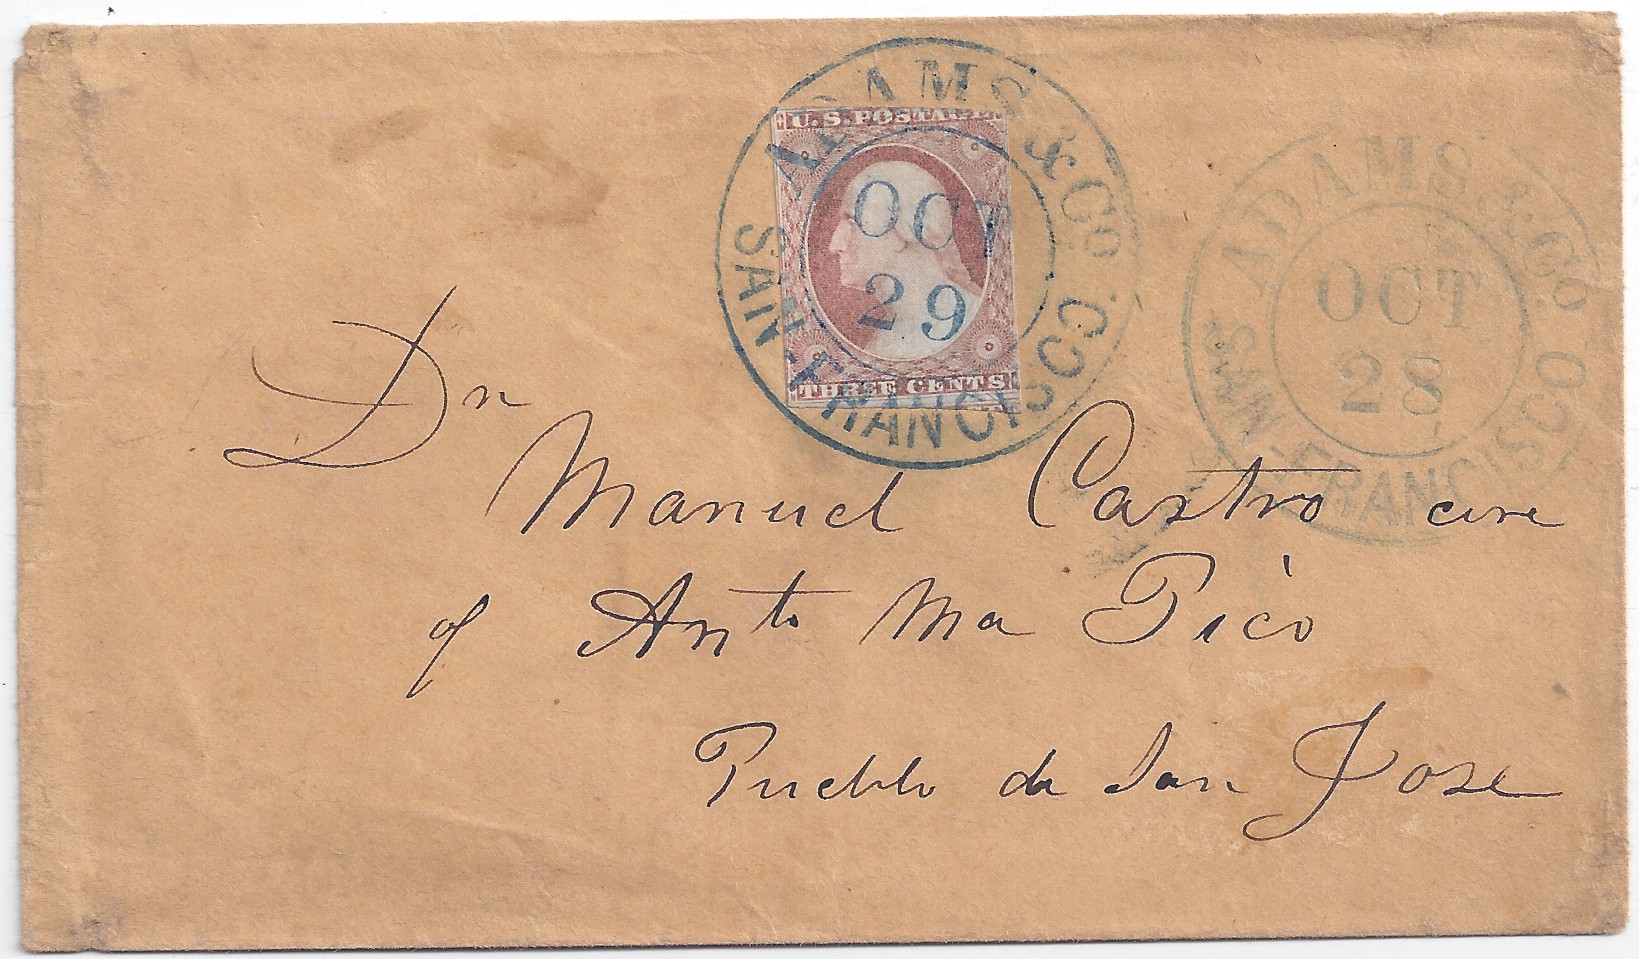 ADAMS & Co.
SAN-FRANCISCO
OCT
29
U.S. POSTAGE
THREE CENTS
ADAMS & Co
SAN-FRANCISCO
OCT
28
Dn
Manuel Castro care
of Anto Ma Pico
Pueblo de San Jose